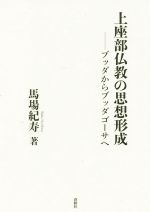 上座部仏教の思想形成
――ブッダからブッダゴーサへ
馬場紀寿 著
春秋社